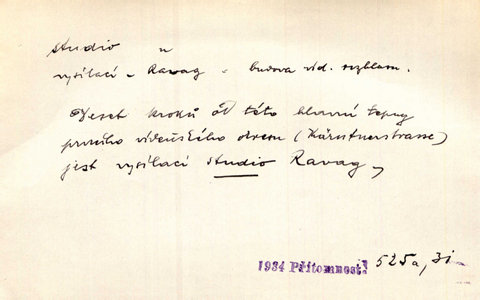 studio "
vysílací - Ravag - budova víd. rozhlasu.
Deset kroků od této hlavní tepny
prvního vídeňského okresu (Kärntnerstrasse)
jest vysílací studio Ravag,
1934 Přítomnost! 525a, 31-